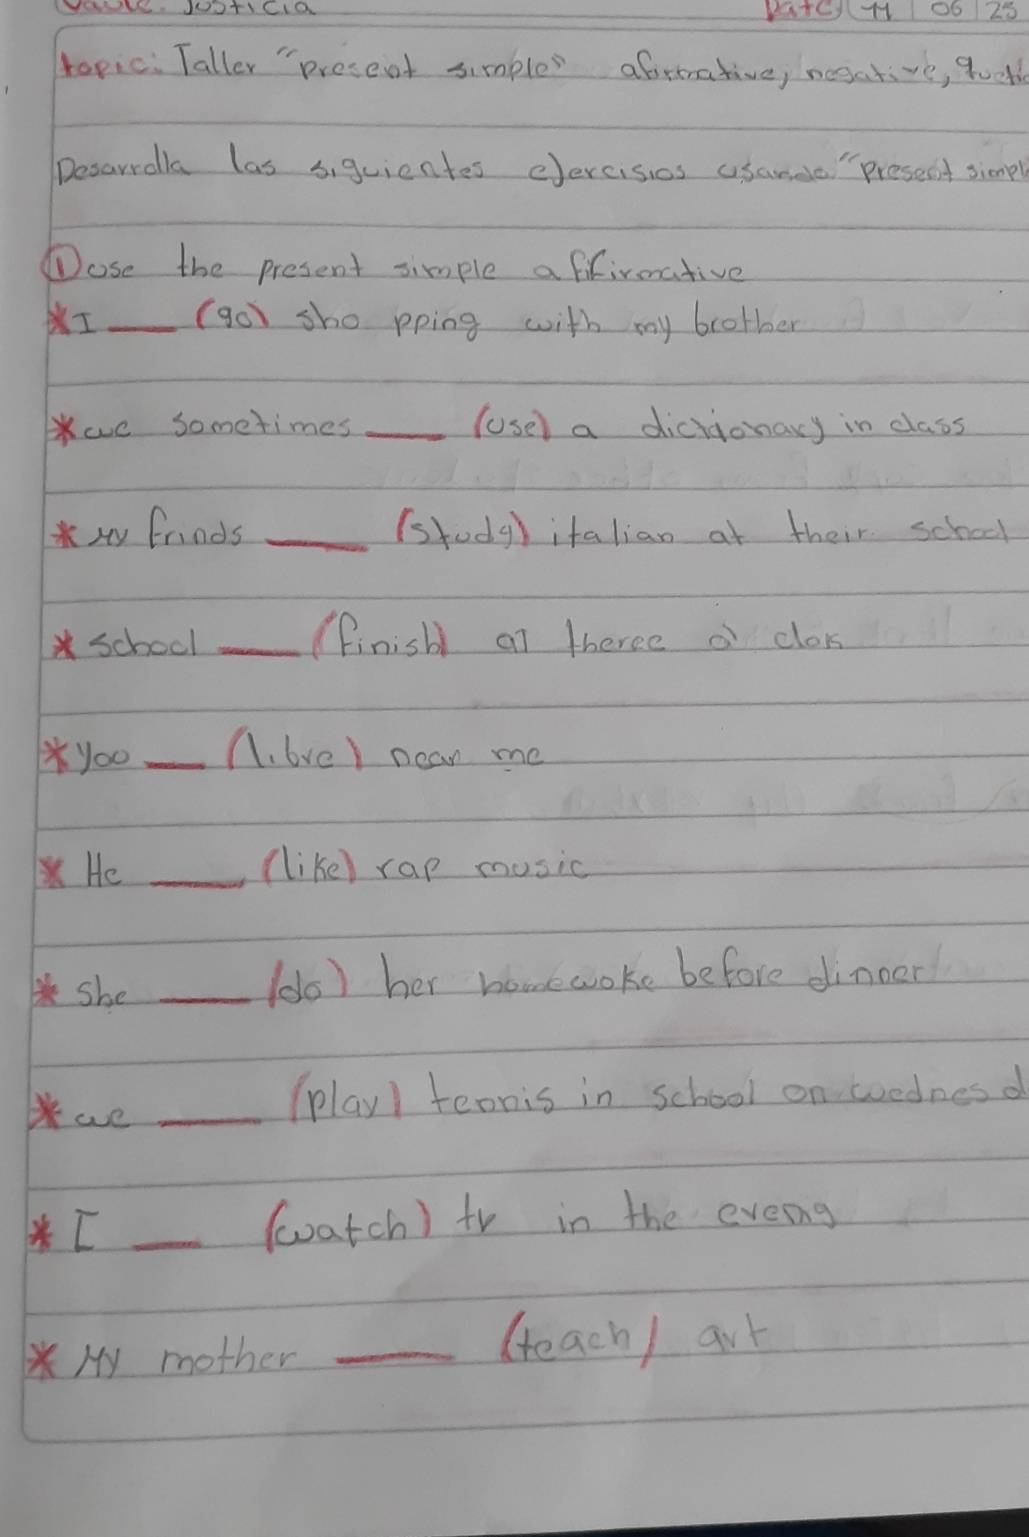 Value: Justicia Date 11 06 25
topic: Taller "present simple" afirmative, negative,
Desarrolla las siguientes ejercisios usando "Present simpl
① use the present simple affirmative
*I ___ (go) sho pping with my brother
*we sometimes ___ (use) a dictionary in class
*My frinds ___ (study) italian at their school
*school ___ (finish) at theree o' clok
*you ___ (libve) near me
*He ___ (like) rap music
*she ___ (do) her homewoke before dinner
*we ___ (play) tennis in school on wednesd
*I ___ (watch) tv in the eveng
*My mother ___ (teach) art